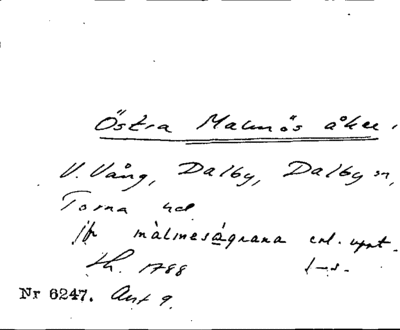 Östra Malmös åker.
V. Vång, Dalby, Dalby sn,
Torna hd
jfr målmesågrana enl. uppt.
th. 1788
Nr 6247. Akt 9.